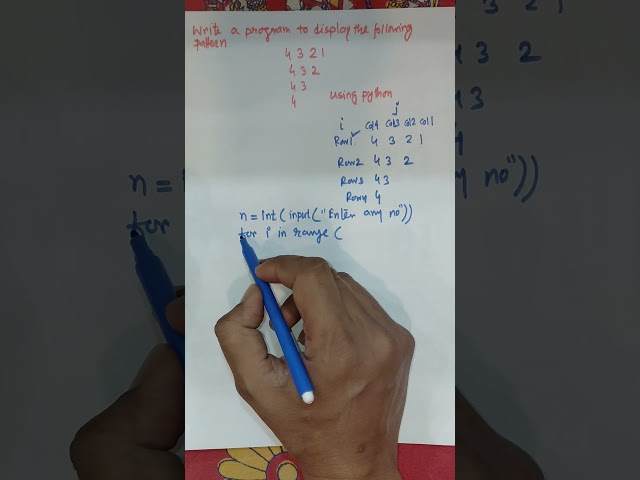 Write a program to display the following
pattern
4 3 2 1
4 3 2
4 3
4
using python
j
i col4 col3 col2 col1
Row1 4 3 2 1
Row2 4 3 2
Row3 4 3
Row4 4
n = int(input("Enter any no"))
for i in range(